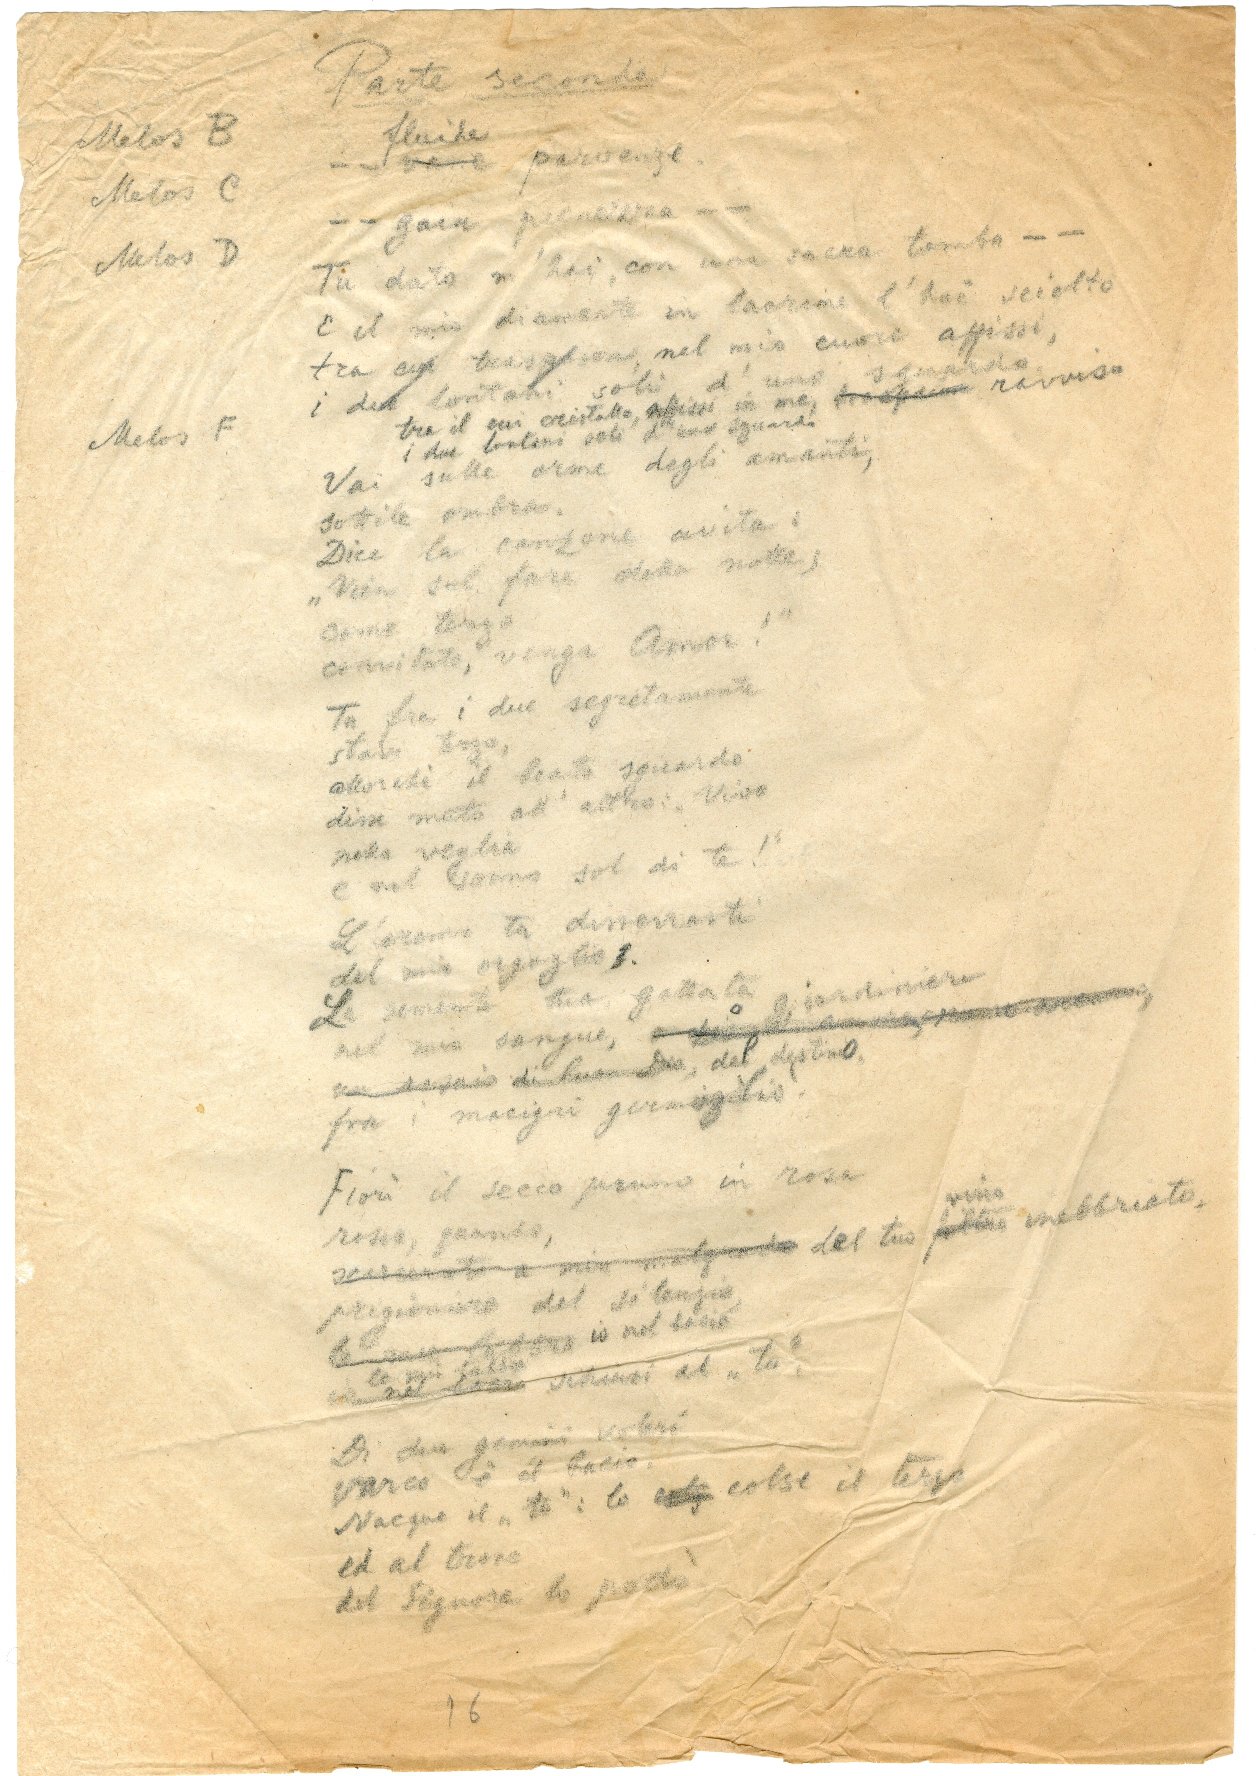 Parte seconda
Melos B
fluide
-- parvenze.
Melos C
-- gaia --
Melos D
Tu dato m'hai, con una sacra tomba --
E il mio diamante in lacrime l'hai sciolto
tra cui nel mio cuore affissi,
i due lontani soli d'uno sguardo.
tra il cui cristallo, affissi in me, ravviso
i due lontani soli d'uno sguardo
Melos F
Vai sulle orme degli amanti,
sottile ombra.
Dice la canzone avita:
„Vien sul fare della notte;
come terzo
convitato, venga Amor!"
Tu fra i due segretamente
stavi terzo,
allorchè il beato sguardo
disse muto all'altro: Vivo
nella veglia
e nel sonno sol di te!"
tu disserrasti
del mio orgoglio.
La semente tua gettata
giardiniere
nel mio sangue, o
del destino,
fra i macigni germogliò.
Fiorì il secco pruno in rosa
rossa, quando,
del tuo vino inebbriato,
prigioniero del silenzio,
io nel bacio
schiusi al „tu".
Di due gemini voleri
varco è il bacio.
Nacque il „tu": lo colse il terzo
ed al trono
del Signore lo portò
16